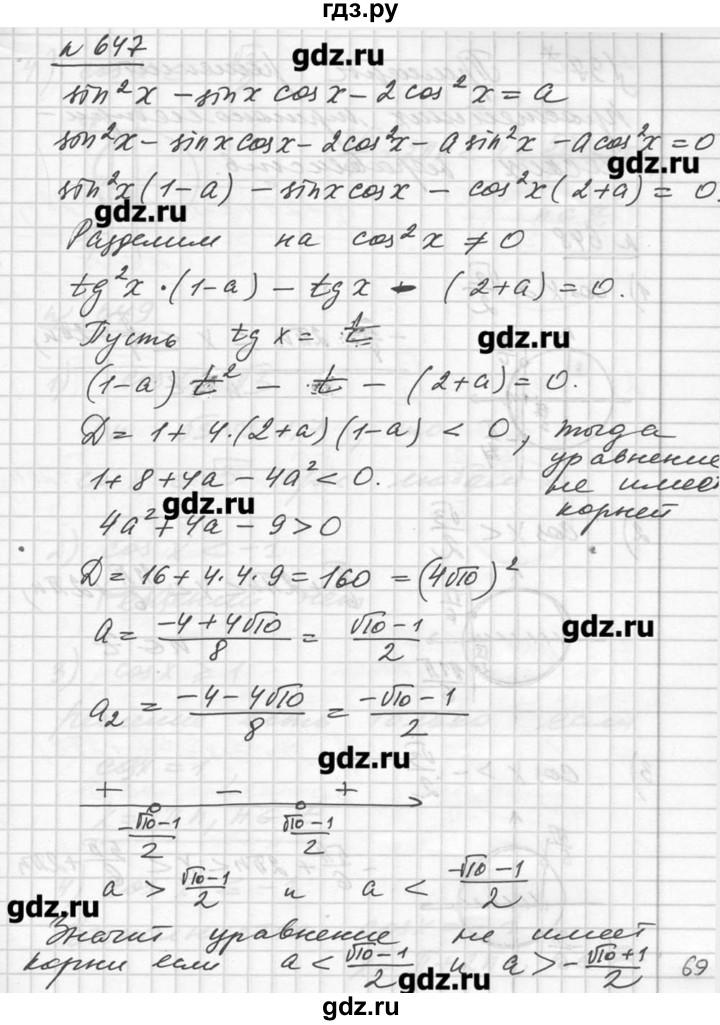 гдз.ру
n 647
gdz.ru
sin²x - sinx cosx - 2cos²x = a
sin²x - sinx cosx - 2cos²x - a sin²x - a cos²x = 0
gdz.ru
sin²x(1-a) - sinx cosx - cos²x(2+a) = 0.
gdz.ru
Разделим на cos²x ≠ 0
tg²x·(1-a) - tg x - (2+a) = 0.
Пусть tg x = t
gdz.ru
(1-a) t² - t - (2+a) = 0.
D = 1 + 4·(2+a)(1-a) < 0, тогда
уравнение
не имеет
корней
1 + 8 + 4a - 4a² < 0.
gdz.ru
4a² + 4a - 9 > 0
D = 16 + 4·4·9 = 160 = (4√10)²
a = (-4+4√10)/8 = (√10-1)/2
gdz.ru
a₂ = (-4-4√10)/8 = (-√10-1)/2
gdz.ru
+ - +
(-√10-1)/2 (√10-1)/2
a > (√10-1)/2 и a < (-√10-1)/2
gdz.ru
Значит уравнение не имеет
корни если a < (√10-1)/2 и a > -(√10+1)/2
69
gdz.ru
gdz.ru